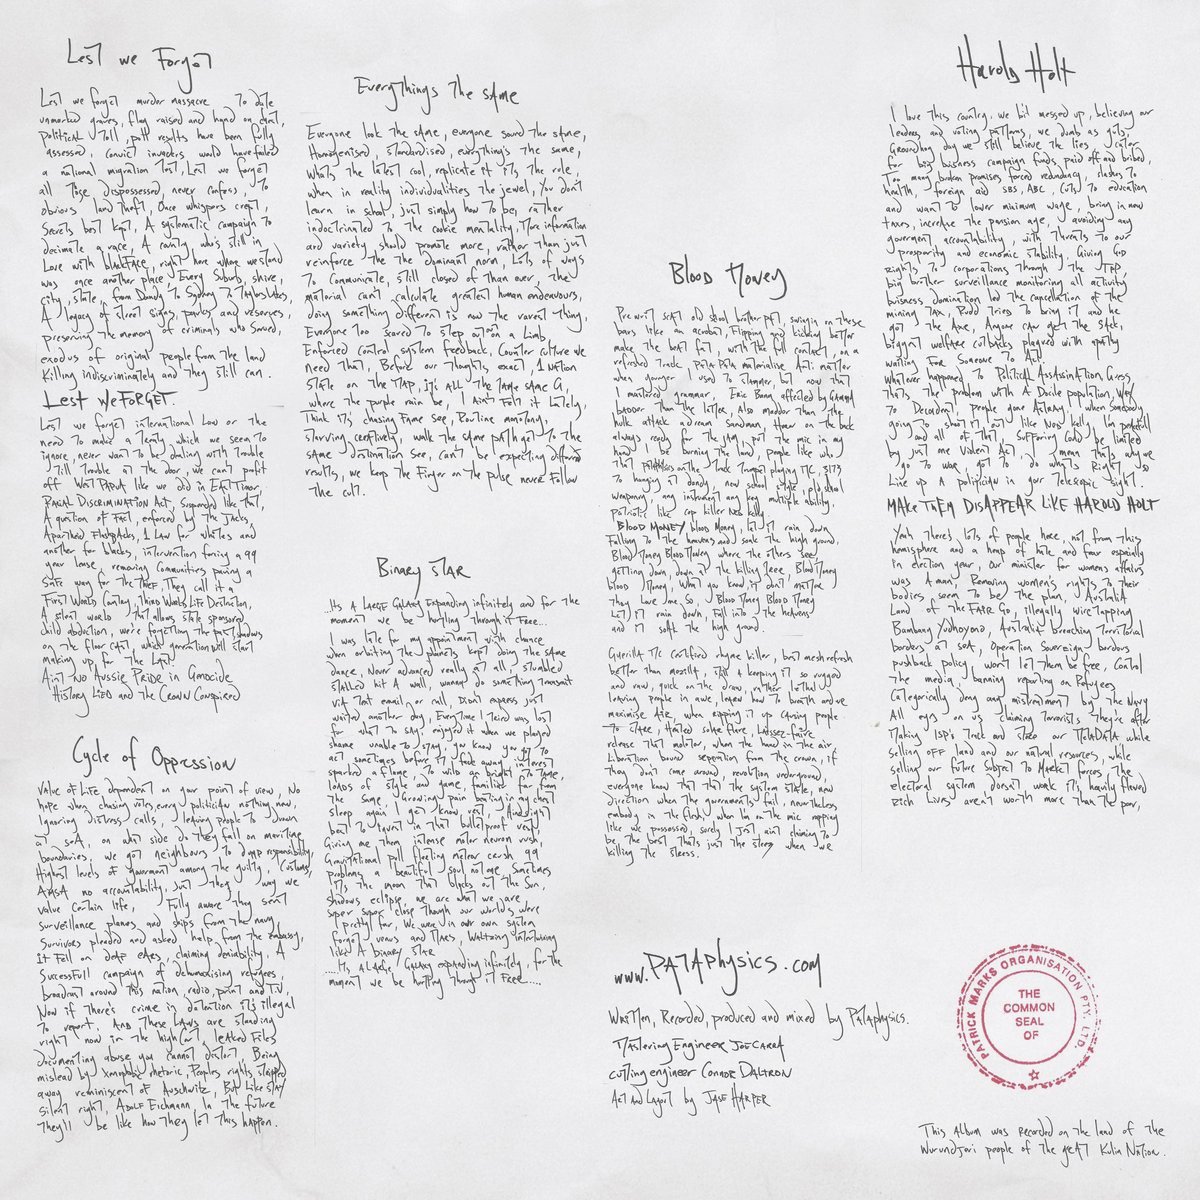 Lest we Forget
Lest we forget murder massacre To date
unmarked graves, flag raised and hand on chest,
Political Toll, poll results have been fully
assessed, convict invaders would have failed
a national migration Test, Lest we forget
all Those dispossessed, never confess, To
obvious land theft, Once whispers crept,
Secrets best kept, A systematic campaign to
decimate a race, A country who's still in
Love with blakface, right here where we stand
was once another place, Every Suburb, shire,
city, state, from Dandy To Sydney To Taylors Lakes,
A legacy of street signs, parks and reserves,
preserving The memory of criminals who Served,
exodus of original people from the land
Killing indiscriminately and They still can.
Lest We FORGET
Lest we forget international Law or the
need To make a Treaty which we seem to
ignore, never want To be dealing with Trouble
Till Trouble at the door, we can't profit
off West PAPUA like we did in East Timor,
RACIAL DISCRIMINATION Act, Suspended like that,
A question of Fact, enforced by The Jacks,
Apartheid Flashbacks, 1 Law for whites and
another for blacks, intervention forcing a 99
year lease, removing Communities paving a
Safe way for the THIEF, They call it a
First World Country, Third World Life Destruction,
A silent world That allows state sponsored
child abduction, we're forgetting The past shadows
on the floor cast, which generation will start
making up for the Last
Ain't No Aussie Pride in Genocide
History Lied and the Crown Conspired
Cycle of Oppression
Value of Life dependent on your point of view, No
hope when chasing votes, every politician nothing new,
Ignoring distress calls, leaving people To Drown
at seA, on what side do They fall on maritime
boundaries, we got neighbours To dump responsibility,
Highest levels of government among the guilty, Customs,
AMSA no accountability, Just The way we
value Certain life, Fully aware They sent
surveillance planes and ships from the navy,
Survivors pleaded and asked help from the embassy,
it Fell on deaf eArs, claiming deniability, A
Successfull campaign of dehumanising refugees,
broadcast around This nation, radio, print and TV,
Now if There's crime in detention it's illegal
To report, And These LAws are standing
right now in the high Court, leAked Files
documenting abuse you cannot distort, Being
mislead by xenophobic rhetoric, Peoples rights stripped
away reminiscent of Auschwitz, But Like STAY
silent right, ADOLF Eichmann, In the future
They'll be like how They let This happen.
Everythings The sAme
Everyone look The same, everyone sound The same,
Homogenised, standardised, everything's The same,
What's The latest cool, replicate it it's The role,
when in reality individualities The jewel, You don't
learn in school, just simply how To be, rather
indoctrinated To the cookie mentality, More information
and variety, should promote more, rather Than just
reinforce the The dominant norm, Lots of ways
To Communicate, still closed off Than ever, The
material can't calculate greatest human endeavours,
doing something different is now The rarest Thing,
Everyone Too scared To step out on a Limb
Enforced control system feedback, Counter culture we
need That, Before our Thoughts exact, 1 Nation
state on the MAP, it's ALL The same same G,
where The purple rain be, I Ain't Felt it Lately,
Think it's chasing Fame See, Routine monotony,
starving creatively, walk The same path got To The
sAme destination See, can't be expecting different
results, we keep The Finger on the pulse never Follow
The cult.
Binary stAR
...It's A LARGE GALAXY Expanding infinitely and for the
moment we be hurtling Through it Free...
I was late for my appointment with chance
when orbiting The planets kept doing the sAme
dance, Never advanced really at all, stumbled
stalled hit A wall, wanna do something Transmit
via Text email or call, Didn't express just
waited another day, Everytime I Tried was lost
for what To say, enjoyed it when we played
shame unable To stay, you know you got To
act sometimes before it fade away, interest
sparked a flame, To wild as bright To TAME,
loads of style and game, families far from
The Same, Growing pain beating in my chest
sleep again I get know rest, And sight
best To invest in That bulletproof vest
Giving me Them intense motor neuron rush,
Gravitational pull fleeting meteor crush 99
problems a beautiful soul not one, Sometimes
it's The moon That blocks out The Sun,
shadows eclipse, we are what we are
super super close Though our world's were
pretty far, We were in our own system
forget venus and MARS, Waltzing intertwining
like A binary stAR
....It's A LARGE Galaxy expanding infinitely, for the
moment we be hurtling Though it Free....
Blood Money
Pre writ scat old school brother pat, swingin on these
bars like an acrobat, Flipping and kicking better
make the beat fat, with The full contact, on a
refurbed Track, Pata Pata materialise Anti matter
when younger I used To stammer but now That
I mastered grammar, Eric Bana affected by GAMMA
badder Than The latter, Also madder Than The
hulk attack a dream Sandman, Hamer on the back
always ready for the jAm, put The mic in my
hand I be burning The land, people like who
That pataphysics on the Track Trumpet playing MC, 3173
To hanging at dandy, new school style old school
weaponry, any instrument any key multiple ability,
patriotic like cop killer Ned Kelly
BLOOD MONEY blood Money, let it rain down
Falling To the heavens and soak The high ground,
Blood Money Blood Money where The others See,
getting down, down at The killing Tree, Blood Money
blood Money, What you know it don't matter
They Love me So, Blood Money Blood Money
Let it rain down, Fall into The heavens
and it soak The high ground.
Guerilla MC certified rhyme killer, best mesh refresh
better than mozilla, still a keeping it so rugged
and raw, quick on the draw, rather lethal
leaving people in awe, learn how To breath and we
maximise Air, when ripping it up causing people
To stare, Heated solar flare, Laissez-faire
release That molotov, when The hand in the air
Liberation bound separation from the crown, if
They don't come around, revolution underground,
everyone know That That The system stale, new
direction when The governments fail, nevertheless
embody in The flesh when I'm on the mic rapping
like we possessed, surely I Jest, ain't claiming To
be The best That's just The sleep when we
killing The stress.
www.PATAPhysics.com
Written, Recorded, produced and mixed by PATAphysics.
Mastering Engineer Joe Carra
cutting engineer Connor Daltron
Art and Layout by Jase Harper
Harold Holt
I love This country, we bit messed up, believing our
leaders and voting patterns, we dumb as guts,
Groundhog day we still believe The lies, Cater
for big buisness campaign funds, paid off and bribed,
Too many broken promises forced redundacy, slashes To
health, foreign aid SBS, ABC, Cuts To education
and want To lower minimum wage, bring in new
taxes, increase The pension age, avoiding any
goverment accountability, with Threats To our
prosperity and economic stability, Giving GOD
Rights To corporations Through The TPP,
big brother surveillance monitoring all activity
buisness domination led The cancellation of the
mining Tax, Rudd Tried To bring it and he
got the Axe, Anyone Can get The SAck,
biggest welfare cutbacks plagued with apathy
waiting For Someone To Act
Whatever happened To Political AssAssinAtion Guess
That's The problem with A Docile population, Way
To Decadent, people gone Astray, when somebody
going To shoot it out like Ned Kelly,
and all of That, Suffering Could be limited
by just one Violent Act, I mean That's why we
go To war, got To do what's Right, so
Line up A politician in your Telescopic sight.
MAKe THEM DISAPPEAR LIKE HAROLD HOLT
Yeah There's lots of people here, not from This
hemisphere and a heap of hate and fear especially
in election year, Our minister for women's affairs
was A man, Removing women's rights To their
bodies seem to be The plan, AustraliA
Land of the FAIR Go, illegally wire Tapping
Bambang Yudhoyono, Australia Breaching Territorial
borders at seA, Operation Sovereign borders
pushback policy, won't let Them be free, Control
The media, banning reporting on Refugees
Categorically deny any mistreatment by the Navy
All eyes on us claiming Terrorists They're after
Making ISP's Track and store our MetADATA while
selling off land and our natural resources, while
selling our future Subject To MARKeT forces, The
electoral system doesn't work it's heavily flawed
Rich Lives aren't worth more Than The poor,
PATRICK MARKS ORGANISATION PTY. LTD.
THE
COMMON
SEAL
OF
This Album was Recorded on the land of the
Wurundjeri people of the greAT Kulin Nation.